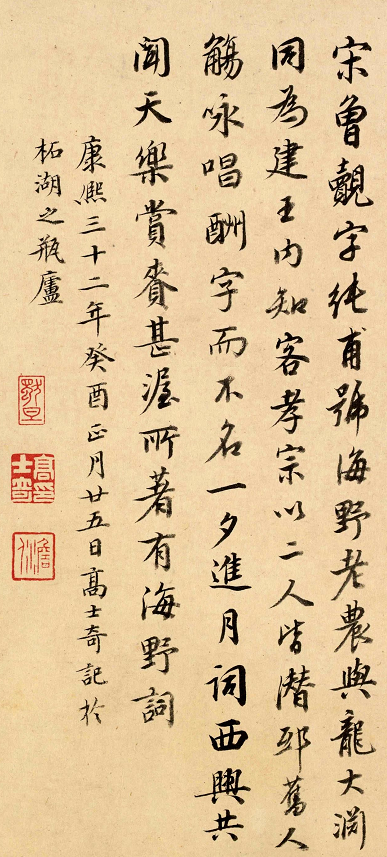 宋魯覿字純甫號海野老農與龍大淵
同為建王内知客孝宗以二人皆潛邸舊人
觴咏唱酬字而不名一夕進月詞西興共
聞天樂賞賚甚渥所著有海野詞
康熙三十二年癸酉正月廿五日高士奇記於
柘湖之瓶廬
高士奇印